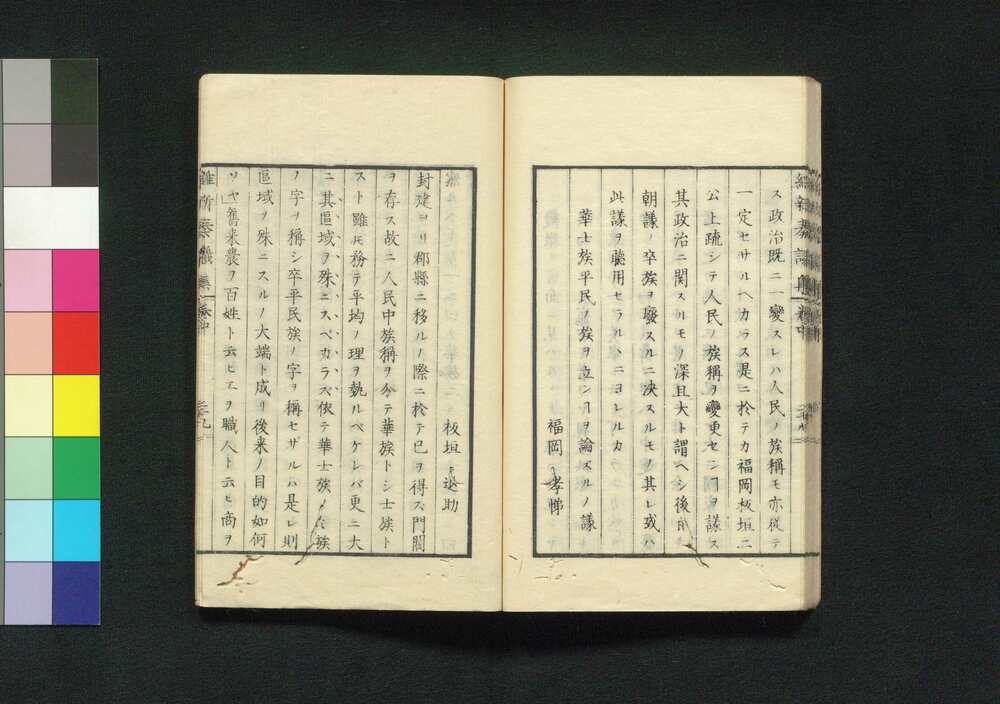 ス政治既ニ一變スレハ人民ノ族稱モ亦從テ
一定セサルヘカラス是ニ於テカ福岡板垣二
公上疏シテ人民ノ族稱ヲ變更センヿヲ議ス
其政治ニ関スルモノ深且大ト謂ヘシ後
朝議ノ卒族ヲ廢スルニ决スルモノ其レ或ハ
此議ヲ聽用セラルヽニヨレルカ
華士族平民ノ族ヲ立ンヿヲ論スルノ議
福岡孝悌
板垣退助
封建ヨリ郡縣ニ移ルノ際ニ於テ已ヲ得ス門閥
ヲ存ス故ニ人民中族稱ヲ分テ華族トシ士族ト
スト雖モ務テ平均ノ理ヲ執ルベケレバ更ニ大
ニ其區域ヲ殊ニスベカラズ依テ華士族ノミ族
ノ字ヲ稱シ卒平民族ノ字ヲ稱セザルハ是レ則
區域ヲ殊ニスルノ大端ト成リ後来ノ目的如何
ソヤ舊来農ヲ百姓ト云ヒ工ヲ職人ト云ヒ商ヲ